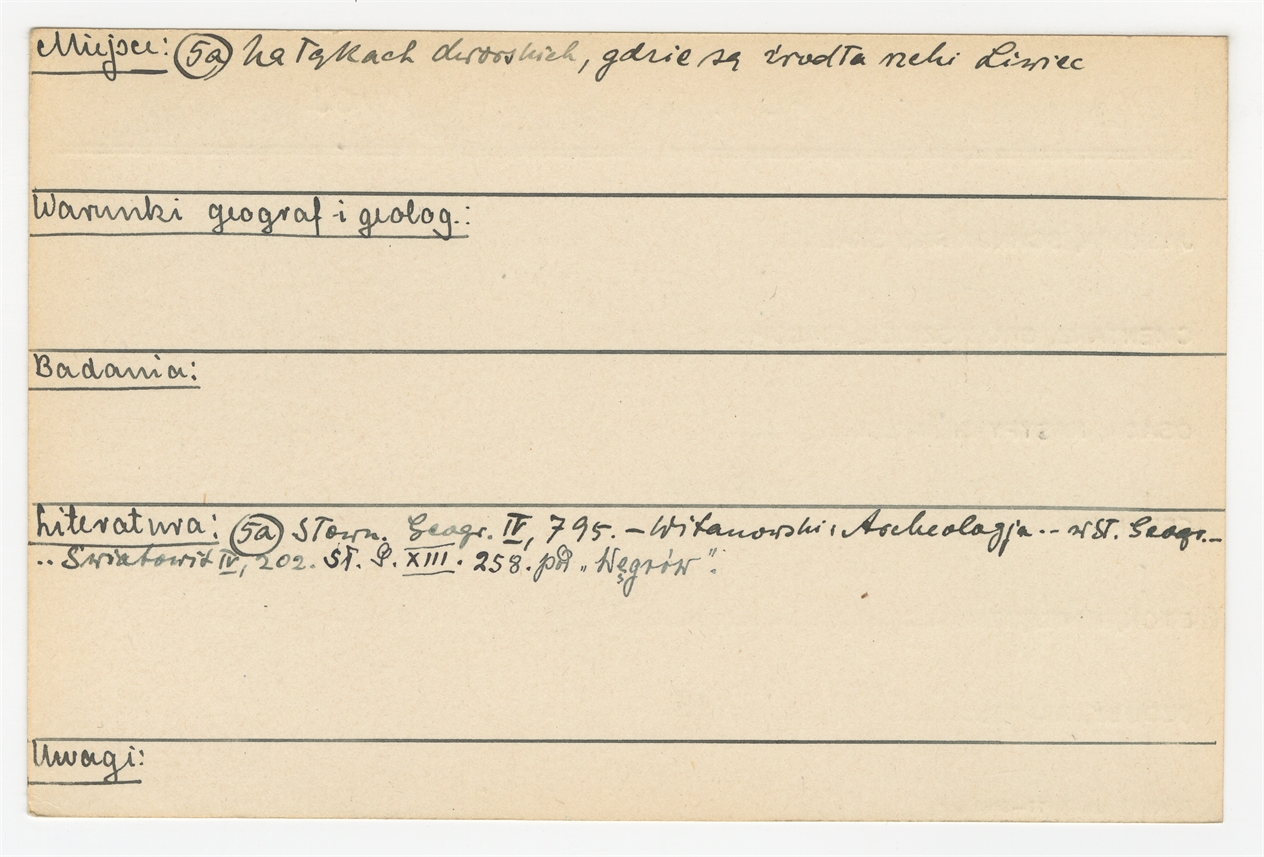 Miejsce: 5a Na łąkach dworskich, gdzie są źrodła rzeki Liwiec
Warunki geograf i geolog.:
Badania:
Literatura: 5a Słown. Geogr. IV, 795. – Witanowski: Archeologja.. w Sł. Geogr. –
.. Swiatowit IV, 202. Sł. G. XIII. 258. pod „Węgrów".
Uwagi: